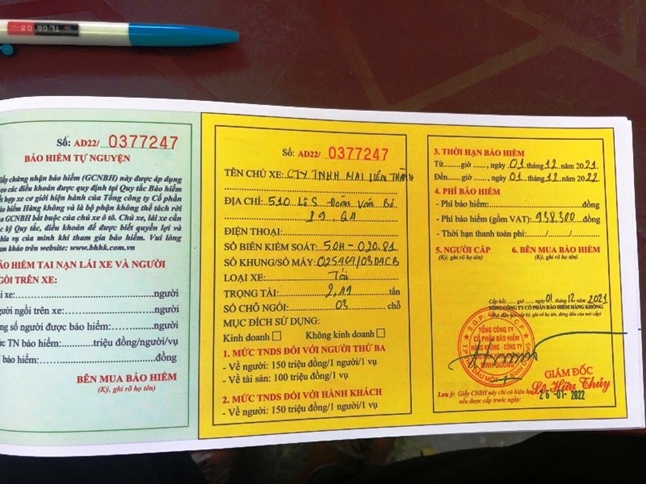 Số: AD22/ 0377247
BẢO HIỂM TỰ NGUYỆN
Giấy chứng nhận bảo hiểm (GCNBH) này được áp dụng
các điều khoản được quy định tại Quy tắc Bảo hiểm
hợp xe cơ giới hiện hành của Tổng công ty Cổ phần
Bảo hiểm Hàng không và là bộ phận không thể tách rời
GCNBH bắt buộc của chủ xe ô tô. Chủ xe, lái xe cần
kỹ Quy tắc, điều khoản để được biết quyền lợi và
nghĩa vụ của mình khi tham gia bảo hiểm. Vui lòng
tham khảo trên website: www.bhhk.com.vn
BẢO HIỂM TAI NẠN LÁI XE VÀ NGƯỜI
NGỒI TRÊN XE:
xe: người
người ngồi trên xe: người
số người được bảo hiểm: người
TN bảo hiểm: triệu đồng/người/vụ
bảo hiểm: đồng
BÊN MUA BẢO HIỂM
(Ký, ghi rõ họ tên)
Số: AD22/ 0377247
TÊN CHỦ XE: CTY TNHH MAI
ĐỊA CHỈ: 510 Đoàn Văn Bơ
ĐIỆN THOẠI:
SỐ BIỂN KIỂM SOÁT: 50H-020.81
SỐ KHUNG/SỐ MÁY:
LOẠI XE: Tải
TRỌNG TẢI: tấn
SỐ CHỖ NGỒI: 03 chỗ
MỤC ĐÍCH SỬ DỤNG:
Kinh doanh Không kinh doanh
1. MỨC TNDS ĐỐI VỚI NGƯỜI THỨ BA
- Về người: 150 triệu đồng/1 người/1 vụ
- Về tài sản: 100 triệu đồng/1 vụ
2. MỨC TNDS ĐỐI VỚI HÀNH KHÁCH
- Về người: 150 triệu đồng/1 người/1 vụ
3. THỜI HẠN BẢO HIỂM
Từ giờ , ngày 01 tháng 12 năm 2021
Đến giờ , ngày 01 tháng 12 năm 2022
4. PHÍ BẢO HIỂM
- Phí bảo hiểm: đồng
- Phí bảo hiểm (gồm VAT): 938.300 đồng
- Thời hạn thanh toán phí: / /
5. NGƯỜI CẤP 6. BÊN MUA BẢO HIỂM
(Ký, ghi rõ họ tên) (Ký, ghi rõ họ tên)
Cấp hồi: giờ , ngày 01 / 12 năm 2021
TỔNG CÔNG TY CỔ PHẦN BẢO HIỂM HÀNG KHÔNG
TỔNG CÔNG TY
CỔ PHẦN BẢO HIỂM
HÀNG KHÔNG - CÔNG TY
GIÁM ĐỐC
Lê Hữu Thủy
26-01-2022
Lưu ý: Giấy CNBH này chỉ có hiệu lực
nếu được cấp trước ngày: